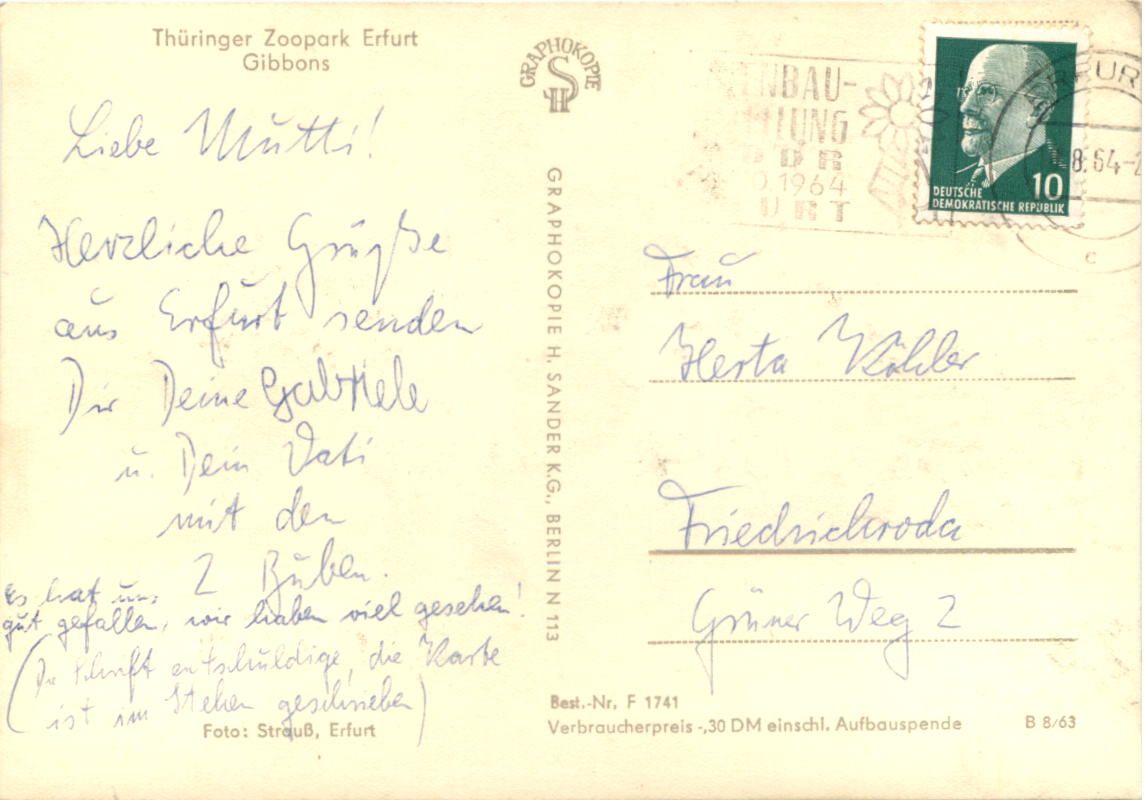 Thüringer Zoopark Erfurt
Gibbons
Liebe Mutti!
Herzliche Grüße
aus Erfurt senden
Dir Deine Gabriele
u. Dein Vati
mit den
2 Buben.
Es hat uns
gut gefallen, wir haben viel gesehen!
(Die Schrift entschuldige, die Karte
ist im Stehen geschrieben)
Foto: Strauß, Erfurt
GRAPHOKOPIE
SH
GRAPHOKOPIE H. SANDER K.G., BERLIN N 113
ENBAU-
LLUNG
DDR
0.1964
URT
DEUTSCHE 10
DEMOKRATISCHE REPUBLIK
FUR
8.64-2
c
Frau
Herta Köhler
Friedrichroda
Grüner Weg 2
Best.-Nr. F 1741
Verbraucherpreis -,30 DM einschl. Aufbauspende
B 8/63